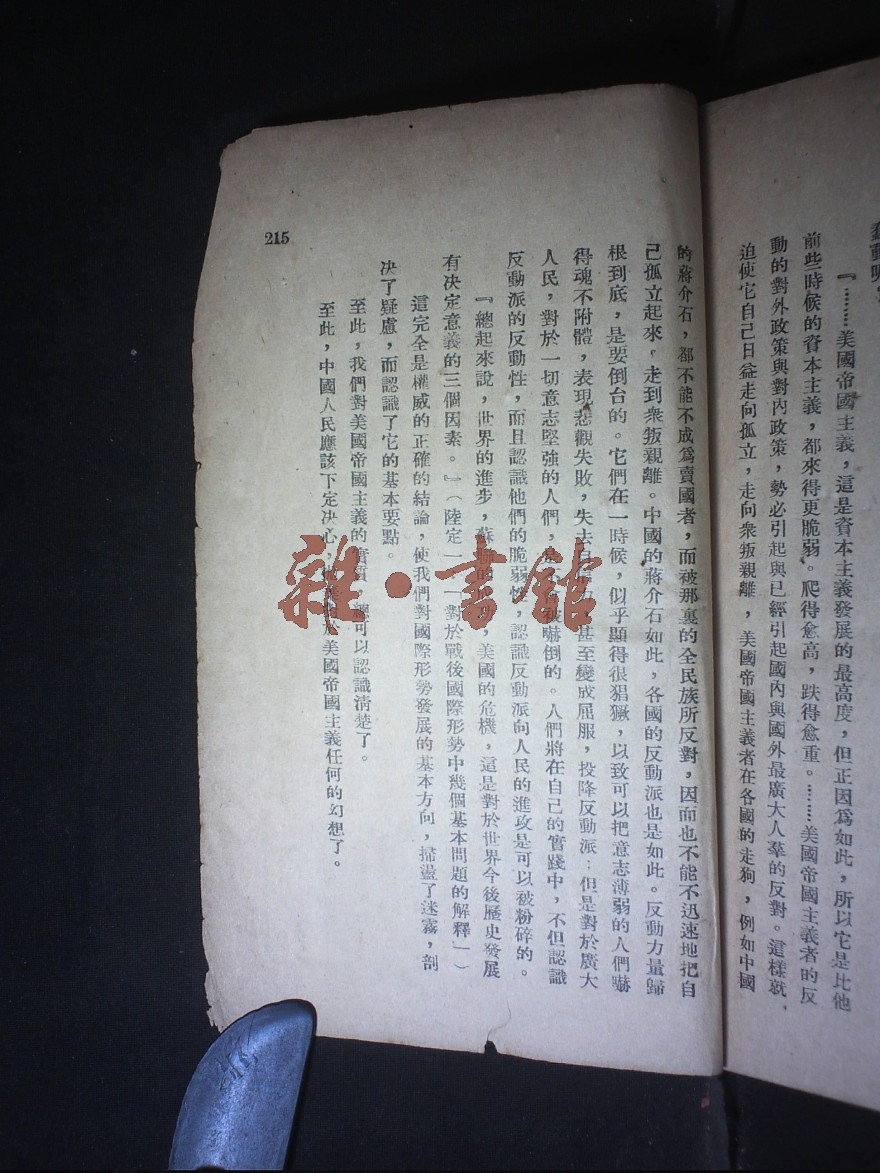 蠢動呢？
『………美國帝國主義，這是資本主義發展的最高度，但正因爲如此，所以它是比他
前些時候的資本主義，都來得更脆弱。爬得愈高，跌得愈重。………美國帝國主義者的反
動的對外政策與對內政策，勢必引起與已經引起國內與國外最廣大人羣的反對。這樣就，
迫使它自己日益走向孤立，走向衆叛親離，美國帝國主義者在各國的走狗，例如中國
的蔣介石，都不能不成爲賣國者，而被那裏的全民族所反對，因而也不能不迅速地把自
己孤立起來，走到衆叛親離。中國的蔣介石如此，各國的反動派也是如此。反動力量歸
根到底，是要倒台的。它們在一時候，似乎顯得很猖獗，以致可以把意志薄弱的人們嚇
得魂不附體，表現悲觀失敗，失去自，甚至變成屈服，投降反動派：但是對於廣大
人民，對於一切意志堅強的人們，是被嚇倒的。人們將在自己的實踐中，不但認識
反動派的反動性，而且認識他們的脆弱性，認識反動派向人民的進攻是可以被粉碎的。
『總起來說，世界的進步，蘇聯的，美國的危機，這是對於世界今後歷史發展
有決定意義的三個因素。』（陸定一：「對於戰後國際形勢中幾個基本問題的解釋」）
這完全是權威的正確的結論，使我們對國際形勢發展的基本方向，掃盪了迷霧，剖
決了疑慮，而認識了它的基本要點。
至此，我們對美國帝國主義的實質，可以認識清楚了。
至此，中國人民應該下定決心，美國帝國主義任何的幻想了。
215
雜·書館